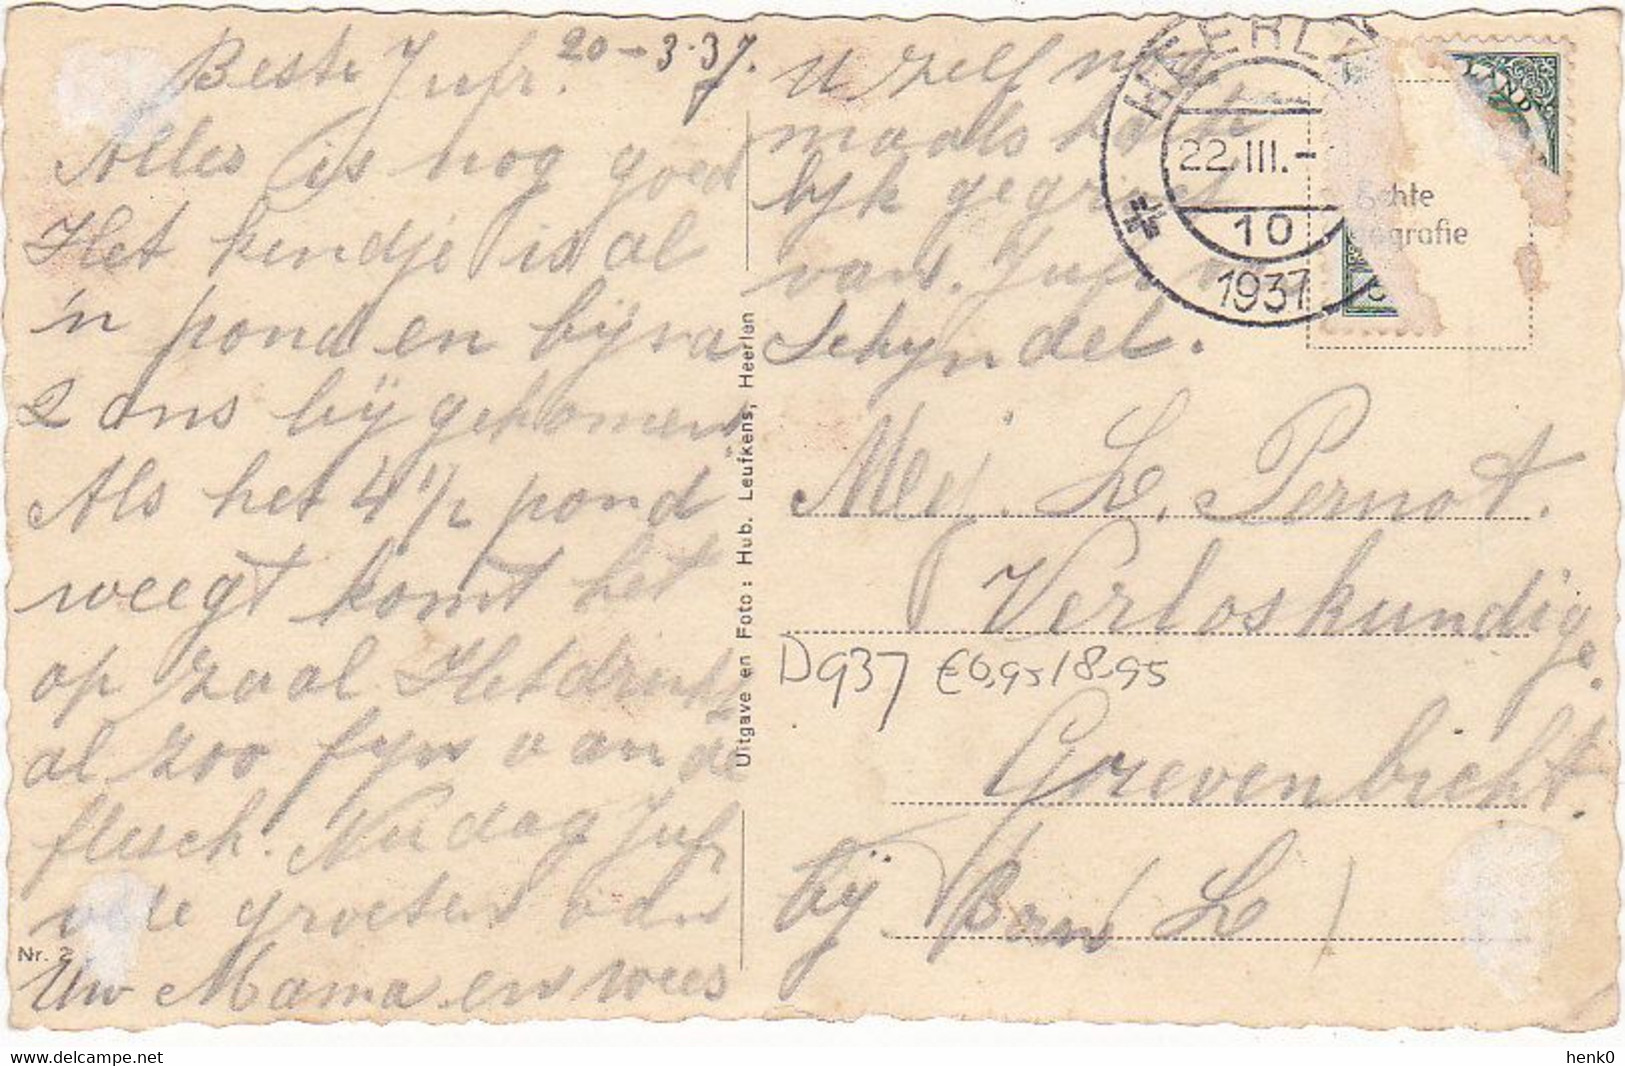 Beste Jufr. 20-3-37.
Alles is nog goed
Het kindje is al
'n pond en bijna
2 ons bij gekomen
Als het 4 1/2 pond
weegt komt het
op zaal Het drinkt
al zoo fijn van de
flesch. Nu dag Jufr
vele groeten van
Uw Mama en wees
U zelf nog
maals harte
lijk gegroet
van. Jufr v
Schyndel.
Mej. L. Pernot.
Verloskundige.
Grevenbicht.
bij Born L
D937 €6,95/8,95
HEERL
22.III.-
10
1937
LAND
Echte
grafie
Uitgave en Foto: Hub. Leufkens, Heerlen
Nr. 2
www.delcampe.net
henk0